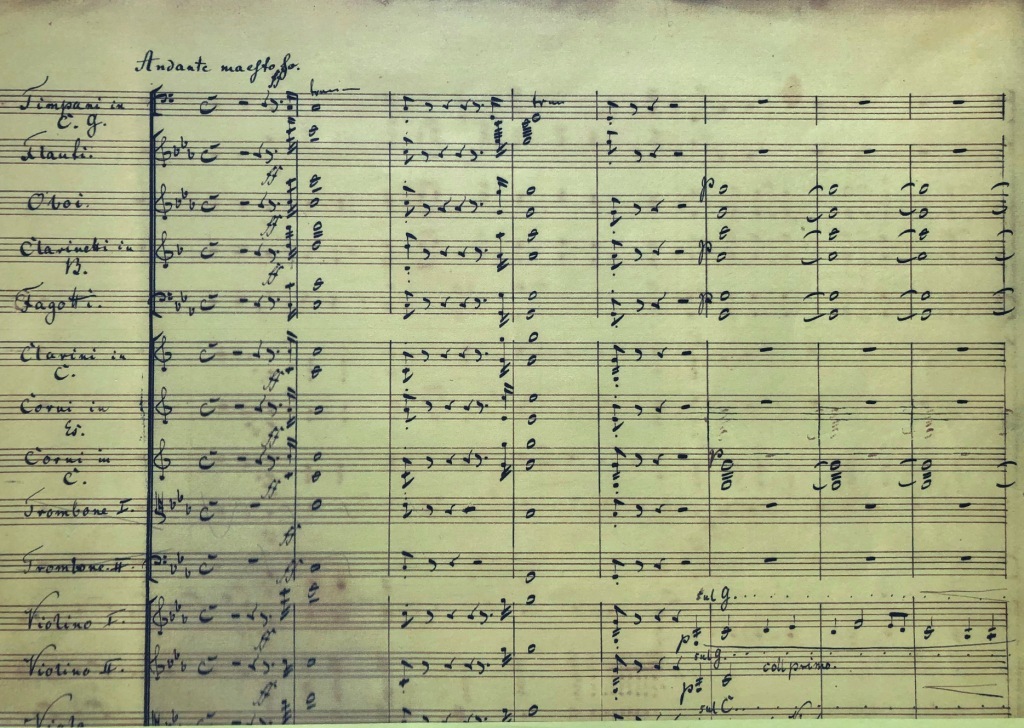 Andante maestoso.
Timpani in
C. G.
Flauti.
Oboi.
Clarinetti in
B.
Fagotti.
Clarini in
C.
Corni in
Es.
Corni in
C.
Trombone I.
Trombone II.
Violino I.
Violino II.
Viola
ff
tr
tr
ff
ff
ff
ff
ff
ff
ff
ff
ff
p
p
p
p
sul G.
p
sul G.
col primo.
p
sul C.